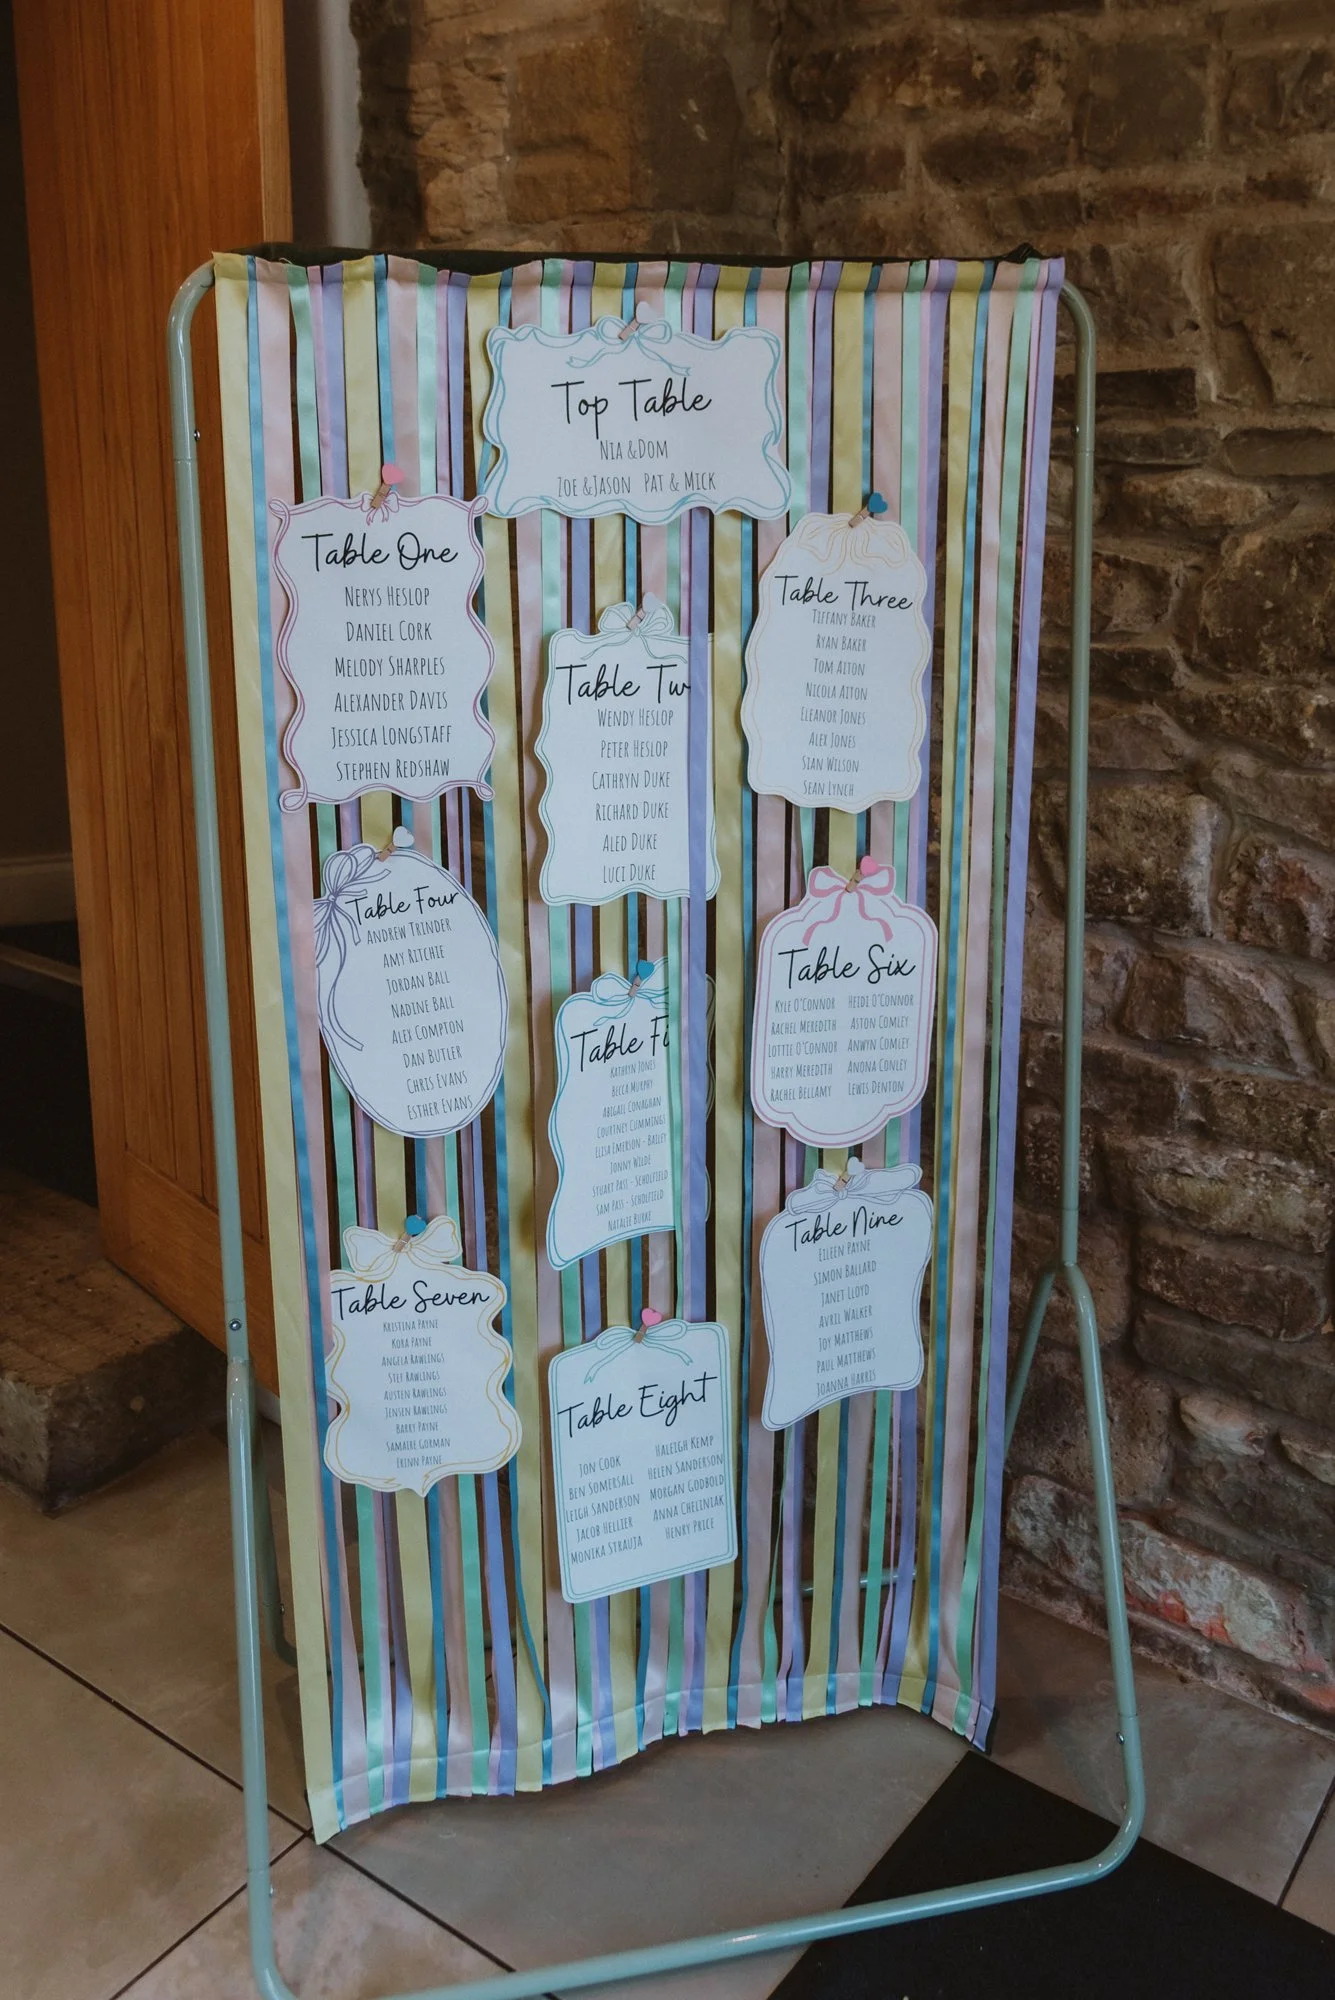 Top Table
Nia & Dom
Zoe & Jason Pat & Mick
Table One
Nerys Heslop
Daniel Cork
Melody Sharples
Alexander Davis
Jessica Longstaff
Stephen Redshaw
Table Tw
Wendy Heslop
Peter Heslop
Cathryn Duke
Richard Duke
Aled Duke
Luci Duke
Table Three
Tiffany Baker
Ryan Baker
Tom Aiton
Nicola Aiton
Eleanor Jones
Alex Jones
Sian Wilson
Sean Lynch
Table Four
Andrew Trinder
Amy Ritchie
Jordan Ball
Nadine Ball
Alex Compton
Dan Butler
Chris Evans
Esther Evans
Table Fi
Kathryn Jones
Becca Murphy
Abigail Conaghan
Courtney Cummings
Elisa Emerson - Bailey
Jonny Wilde
Stuart Pass - Scholfield
Sam Pass - Scholfield
Natalie Burke
Table Six
Kyle O'Connor Heidi O'Connor
Rachel Meredith Aston Comley
Lottie O'Connor Anwyn Comley
Harry Meredith Anona Conley
Rachel Bellamy Lewis Denton
Table Seven
Kristina Payne
Kora Payne
Angela Rawlings
Stef Rawlings
Austen Rawlings
Jensen Rawlings
Barry Payne
Samaire Gorman
Erinn Payne
Table Eight
Jon Cook Haleigh Kemp
Ben Somersall Helen Sanderson
Leigh Sanderson Morgan Godbold
Jacob Hellier Anna Cheliniak
Monika Strauja Henry Price
Table Nine
Eileen Payne
Simon Ballard
Janet Lloyd
Avril Walker
Joy Matthews
Paul Matthews
Joanna Harris